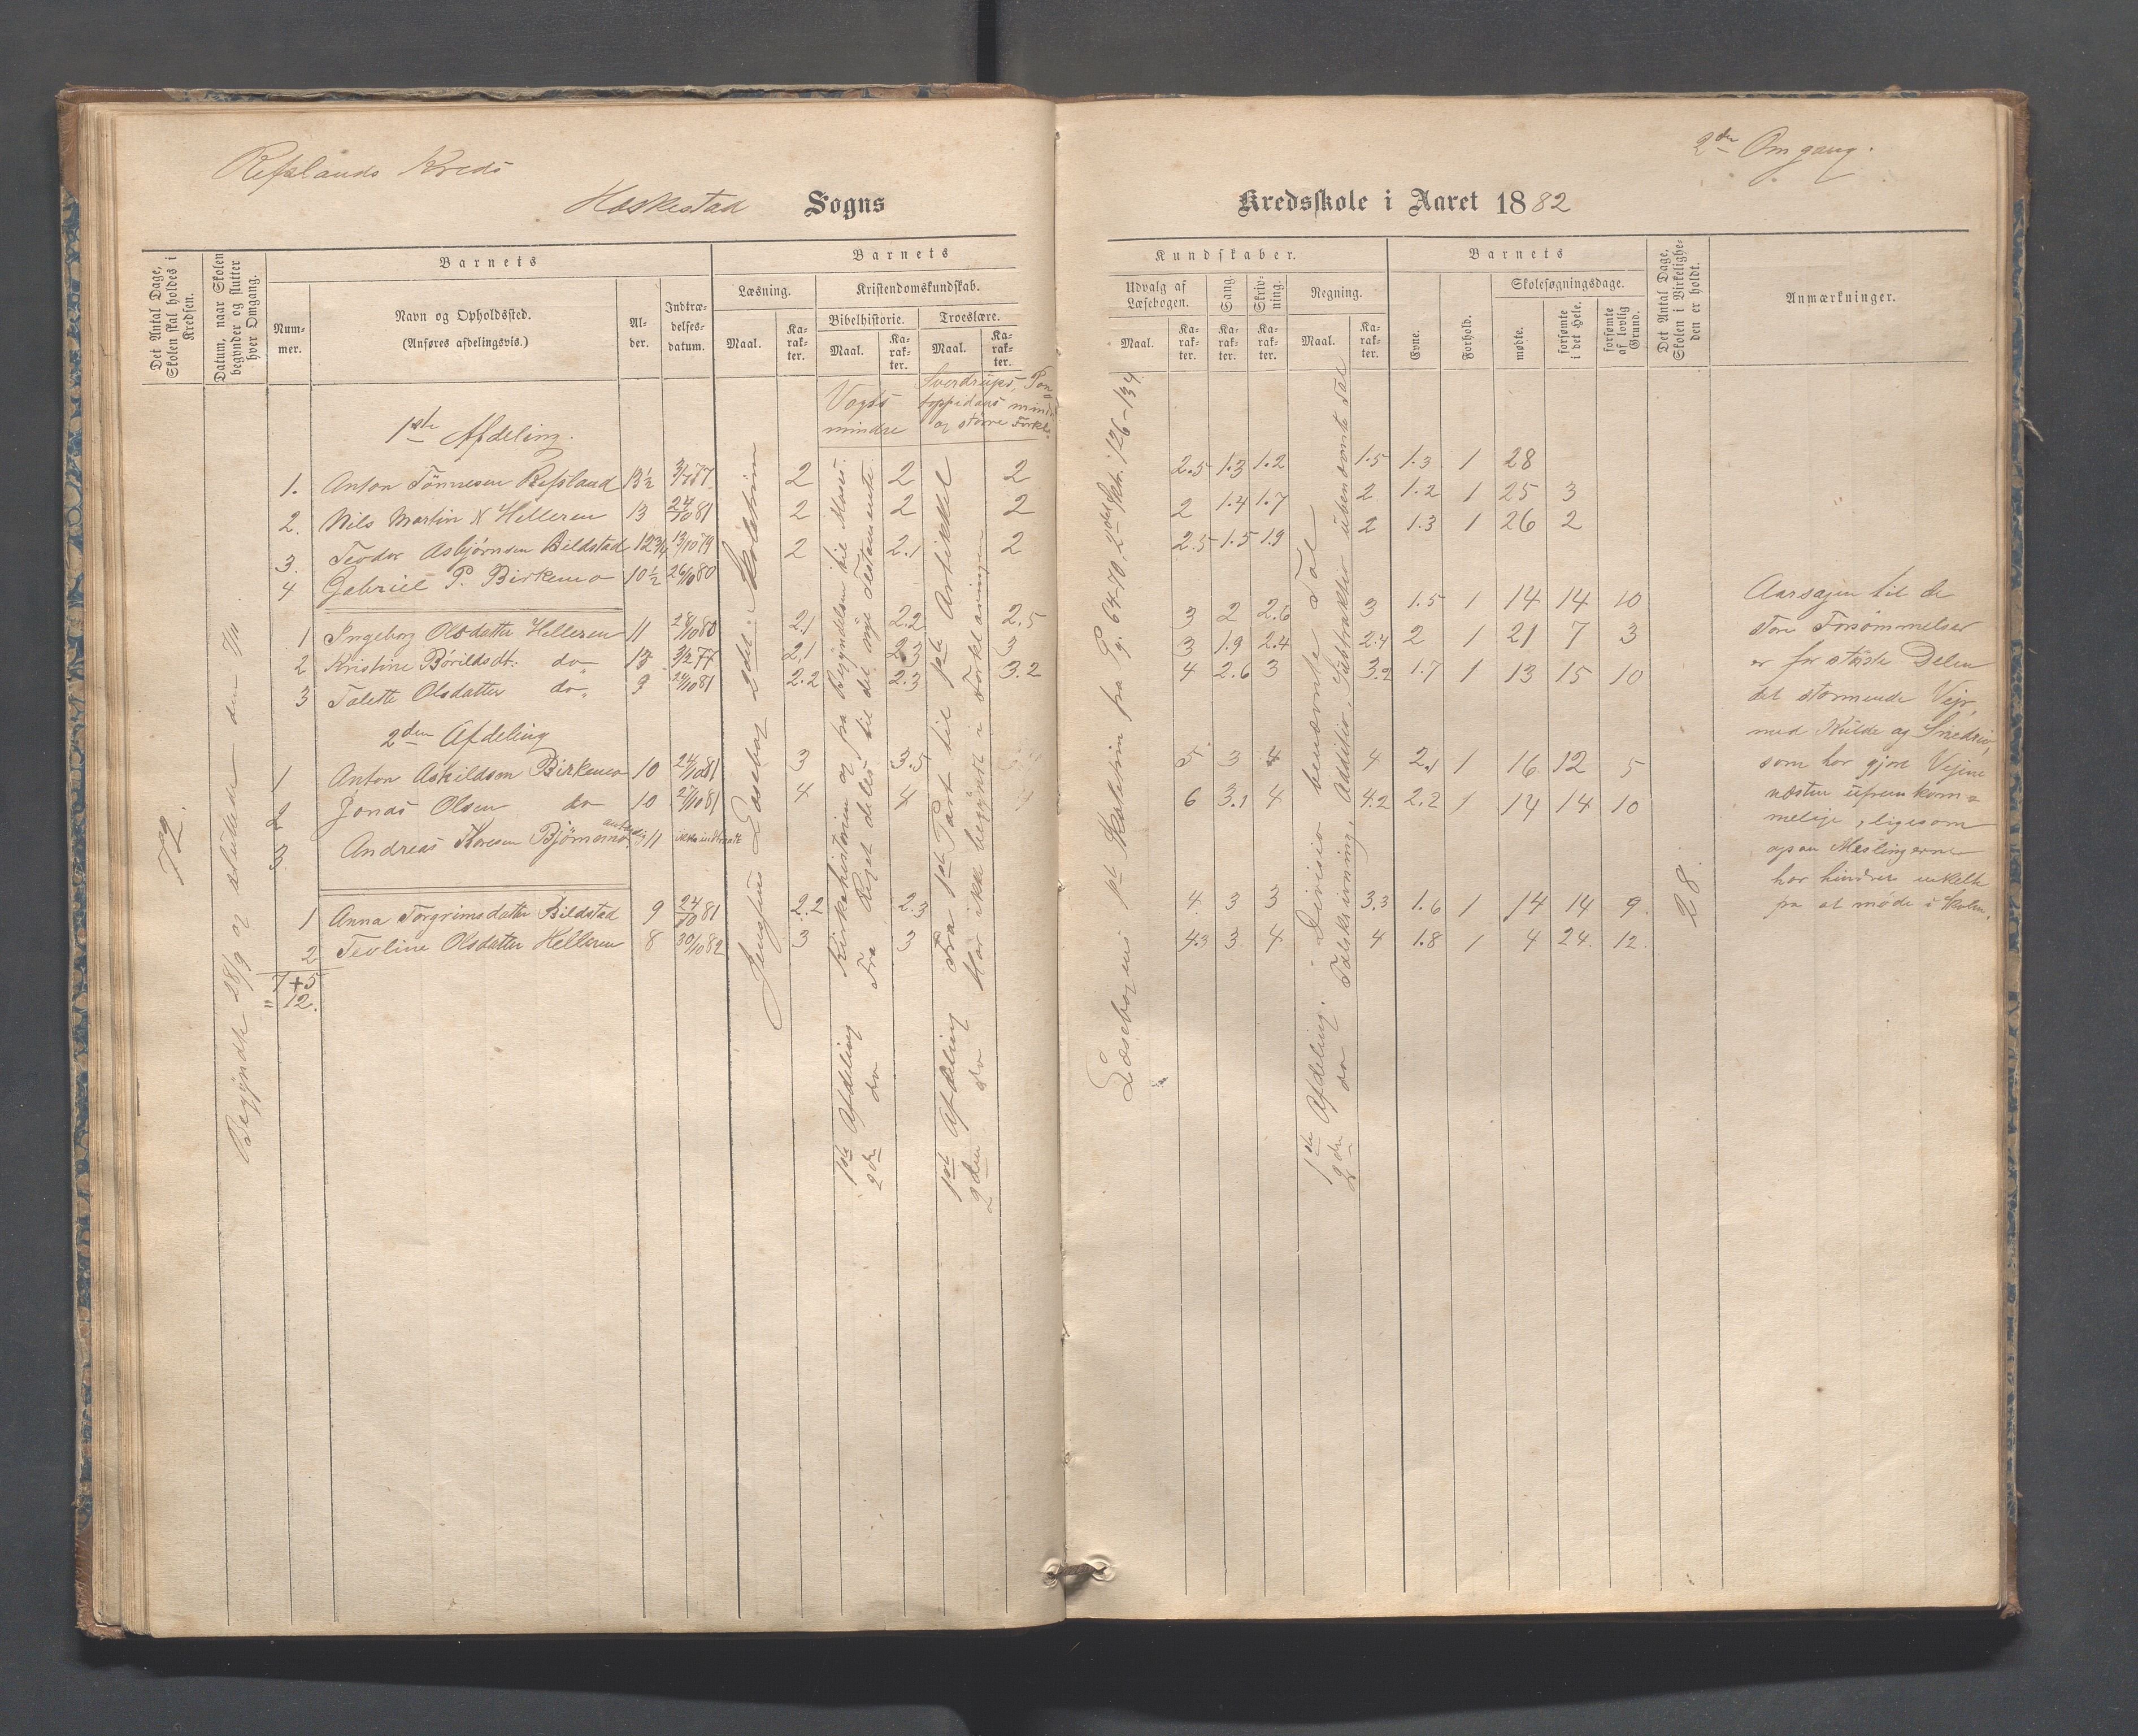 Refslands Kreds
2den Omgang.
Heskestad Sogns
Kredsskole i Aaret 1882
Det Antal Dage, Skolen skal holdes i Kredsen.
Datum, naar Skolen begynder og slutter hver Omgang.
Barnets
Num-
mer.
Navn og Opholdssted.
(Anføres afdelingsvis.)
Al-
der.
Indtræ-
delses-
datum.
Barnets
Læsning.
Maal.
Ka-
rak-
ter.
Kristendomskundskab.
Bibelhistorie.
Maal.
Ka-
rak-
ter.
Troeslære.
Maal.
Ka-
rak-
ter.
Kundskaber.
Udvalg af
Læsebogen.
Maal.
Ka-
rak-
ter.
Sang.
Ka-
rak-
ter.
Skriv-
ning.
Ka-
rak-
ter.
Regning.
Maal.
Ka-
rak-
ter.
Barnets
Evne.
Forhold.
Skolesøgningsdage.
mødte.
forsømte
i det Hele.
forsømte
af lovlig
Grund.
Det Antal Dage, Skolen i Virkelighe-
den er holdt.
Anmærkninger.
Vogts
mindre
Sverdrups, Pon-
toppidans mindre
og større Forkl.
1ste Afdeling.
1. Anton Tönnesen Refsland 13½ 3/7 77 2 2 2 2.5 1.3 1.2 1.5 1.3 1 28
2. Nils Martin N Helleren 13 24/10 81 2 2 2 2 1.4 1.7 2 1.2 1 25 3
3. Teodor Asbjørnsen Bildstad 12¾ 13/10 79 2 2.1 2 2.5 1.5 1.9 2 1.3 1 26 2
4 Gabriel P. Birkemo 10½ 26/10 80
1 Ingeborg Olsdatter Helleren 11 28/10 80 2.1 2.2 2.5 3 2 2.6 3 1.5 1 14 14 10
2 Kristine Bórildsdt. do 13 3/2 77 2.1 2.3 3 3 1.9 2.4 2.4 2 1 21 7 3
3 Talette Olsdatter do 9 24/10 81 2.2 2.3 3.2 4 2.6 3 3.2 1.7 1 13 15 10
2den Afdeling
1 Anton Askildsen Birkemo 10 24/10 81 3 3.5 5 3 4 4 2.1 1 16 12 5
2 Jonas Olsen do 10 27/10 81 4 4 6 3.1 4 4.2 2.2 1 14 14 10
3. Andreas Toresen Bjömemo 11 ikke indtraadt
1 Anna Torgrimsdatter Bildstad 9 24/10 81 2.2 2.3 4 3 3 3.3 1.6 1 14 14 9
2 Teoline Olsdatter Helleren 8 30/10 82 3 3 4.3 3 4 4 1.8 1 4 24 12
7+5
" 12.
72.
Begyndte 28/9 og sluttede den
Jensens Læsebog 2det Skoletrin
1ste Afdeling Kirkehistorien og fra Begyndelsen til Moses
2den do Fra Riget deles til det nye Testamente
1ste Afdeling Fra 1ste Part til 1ste Artikkel
2den do Har ikke begyndt i Forklaringen
Læsebogens 1ste Skoletrin fra g. 64-70, 2det Sktr. 126-134
1ste Afdeling. Divisio benævnte Tal
2den do Talskrivning, Additio, Subtraktio ubenævnte Tal
28.
Aarsagen til de
store Forsømmelser
er for største Delen
det stormende Vejr,
med Kulde og Snedriv,
som har gjort Vejene
næsten ufremkom-
melige, ligesom
ogsaa Meslingerne
har hindret enkelte
fra at møde i Skolen.